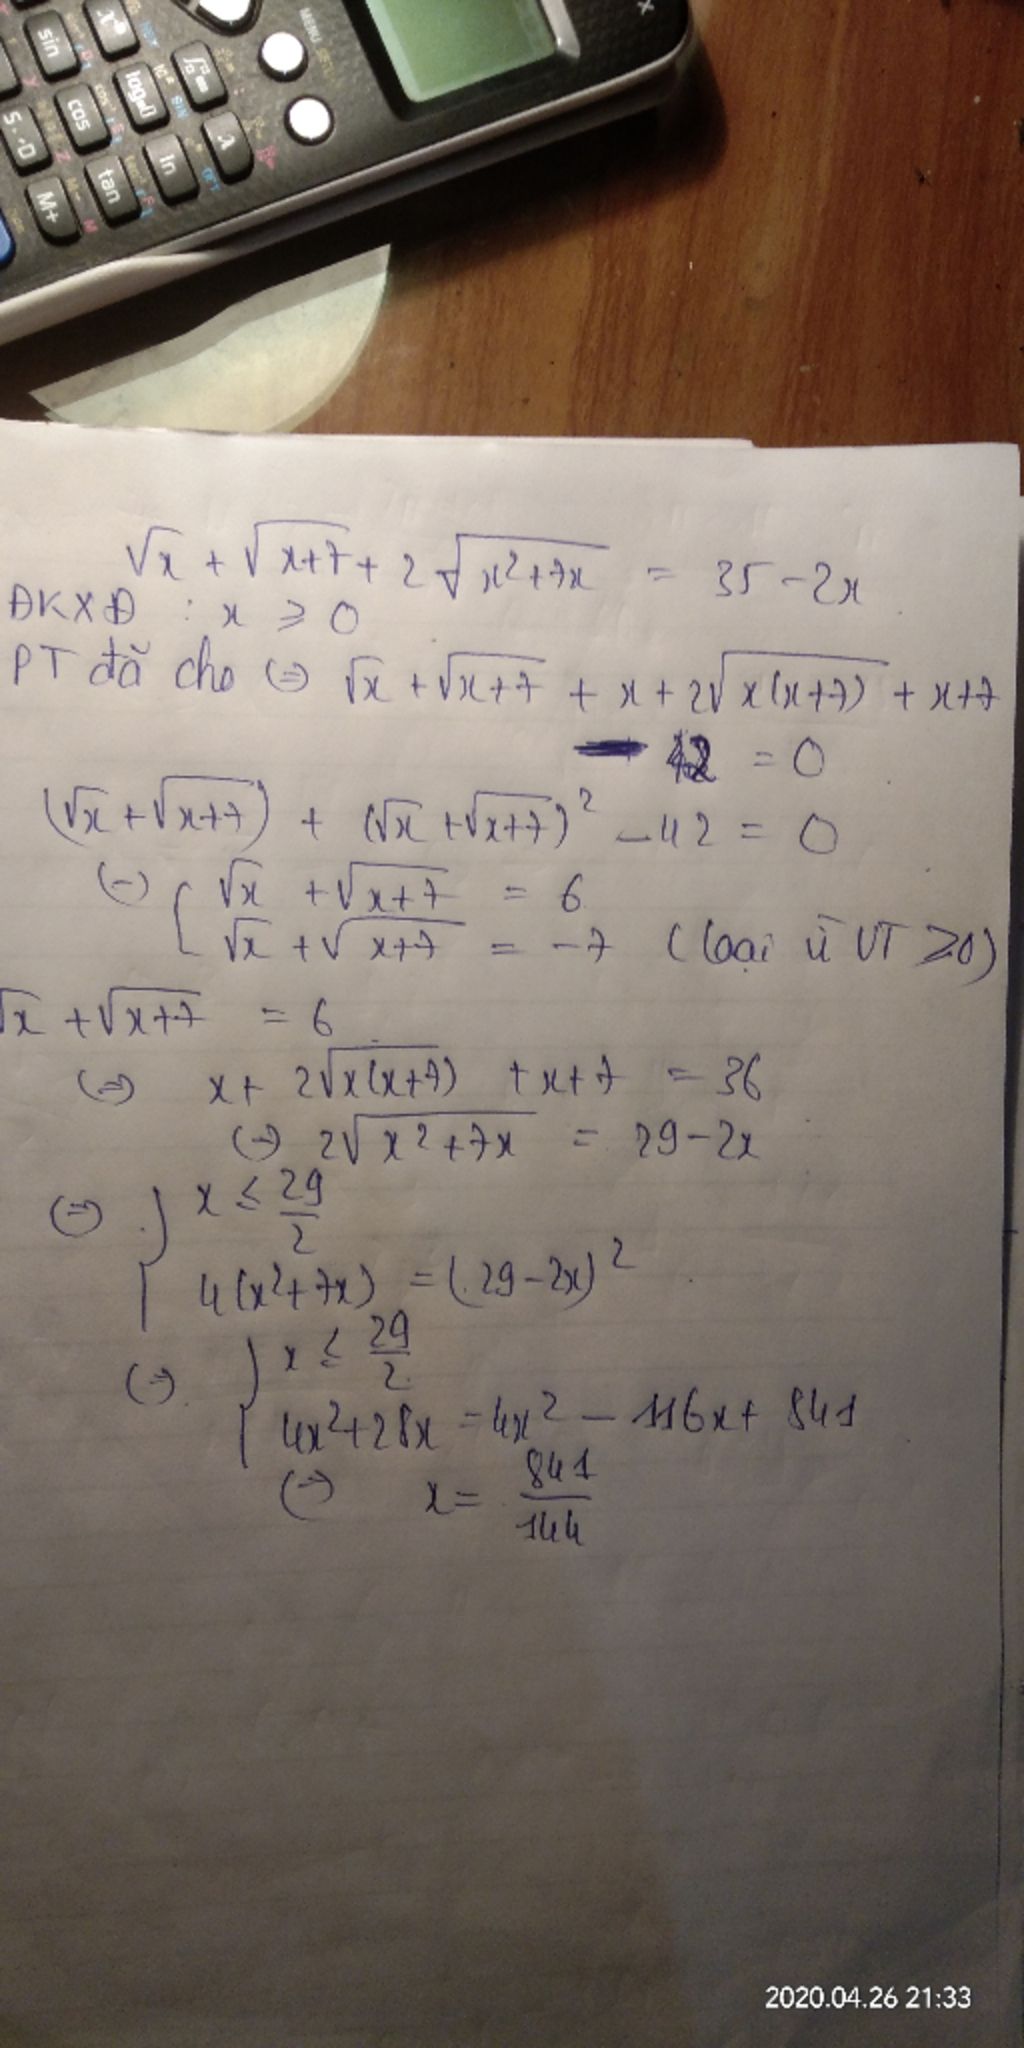 sin
cos
tan
ln
S↔D
M+
MENU
√x + √(x+7) + 2√(x²+7x) = 35-2x
ĐKXĐ : x ≥ 0
PT đã cho (=) √x + √(x+7) + x + 2√(x(x+7)) + x+7
- 42 = 0
(√x + √(x+7)) + (√x + √(x+7))² - 42 = 0
(=) [ √x + √(x+7) = 6
√x + √(x+7) = -7 (loại vì VT ≥ 0)
√x + √(x+7) = 6
(=) x + 2√(x(x+7)) + x+7 = 36
(=) 2√(x²+7x) = 29-2x
(=) { x ≤ 29/2
4(x²+7x) = (29-2x)²
(=) { x ≤ 29/2
4x²+28x = 4x² - 116x + 841
(=) x = 841/144
2020.04.26 21:33